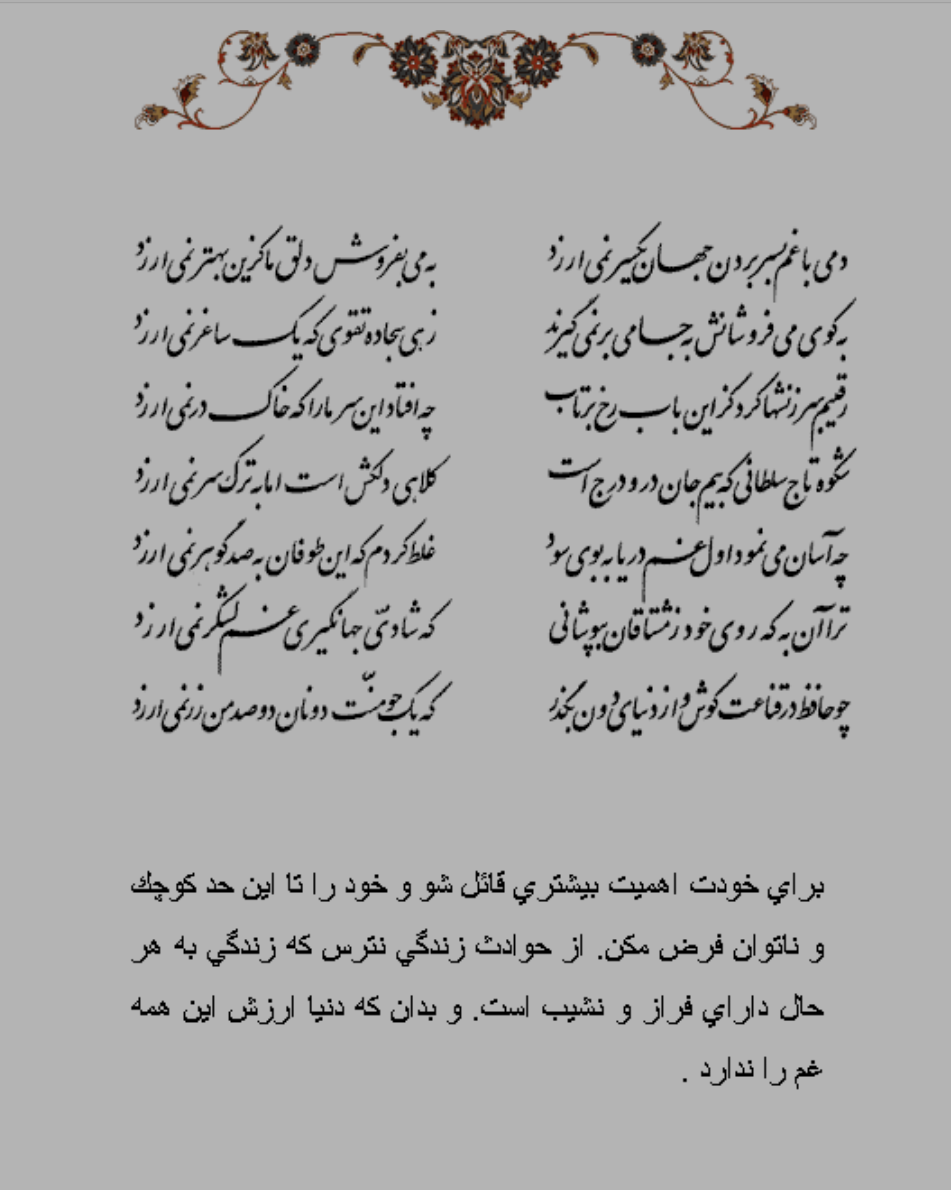 دمی با غم بسر بردن جهان یکسر نمی ارزد به می بفروش دلق ما کزین بهتر نمی ارزد
به کوی می فروشانش به جامی بر نمی گیرند زهی سجاده تقوی که یک ساغر نمی ارزد
رقیبم سرزنشها کرد کز این باب رخ برتاب چه افتاد این سر ما را که خاک در نمی ارزد
شکوه تاج سلطانی که بیم جان درو درج است کلاهی دلکش است اما به ترک سر نمی ارزد
چه آسان می نمود اول غم دریا به بوی سود غلط کردم که این طوفان به صد گوهر نمی ارزد
ترا آن به که روی خود ز مشتاقان بپوشانی که شادیّ جهانگیری غم لشگر نمی ارزد
چو حافظ در قناعت کوش و از دنیای دون بگذر که یک جو منّت دونان دو صد من زر نمی ارزد
براي خودت اهميت بيشتري قائل شو و خود را تا اين حد كوچك
و ناتوان فرض مكن. از حوادث زندگي نترس كه زندگي به هر
حال داراي فراز و نشيب است. و بدان كه دنيا ارزش اين همه
غم را ندارد .